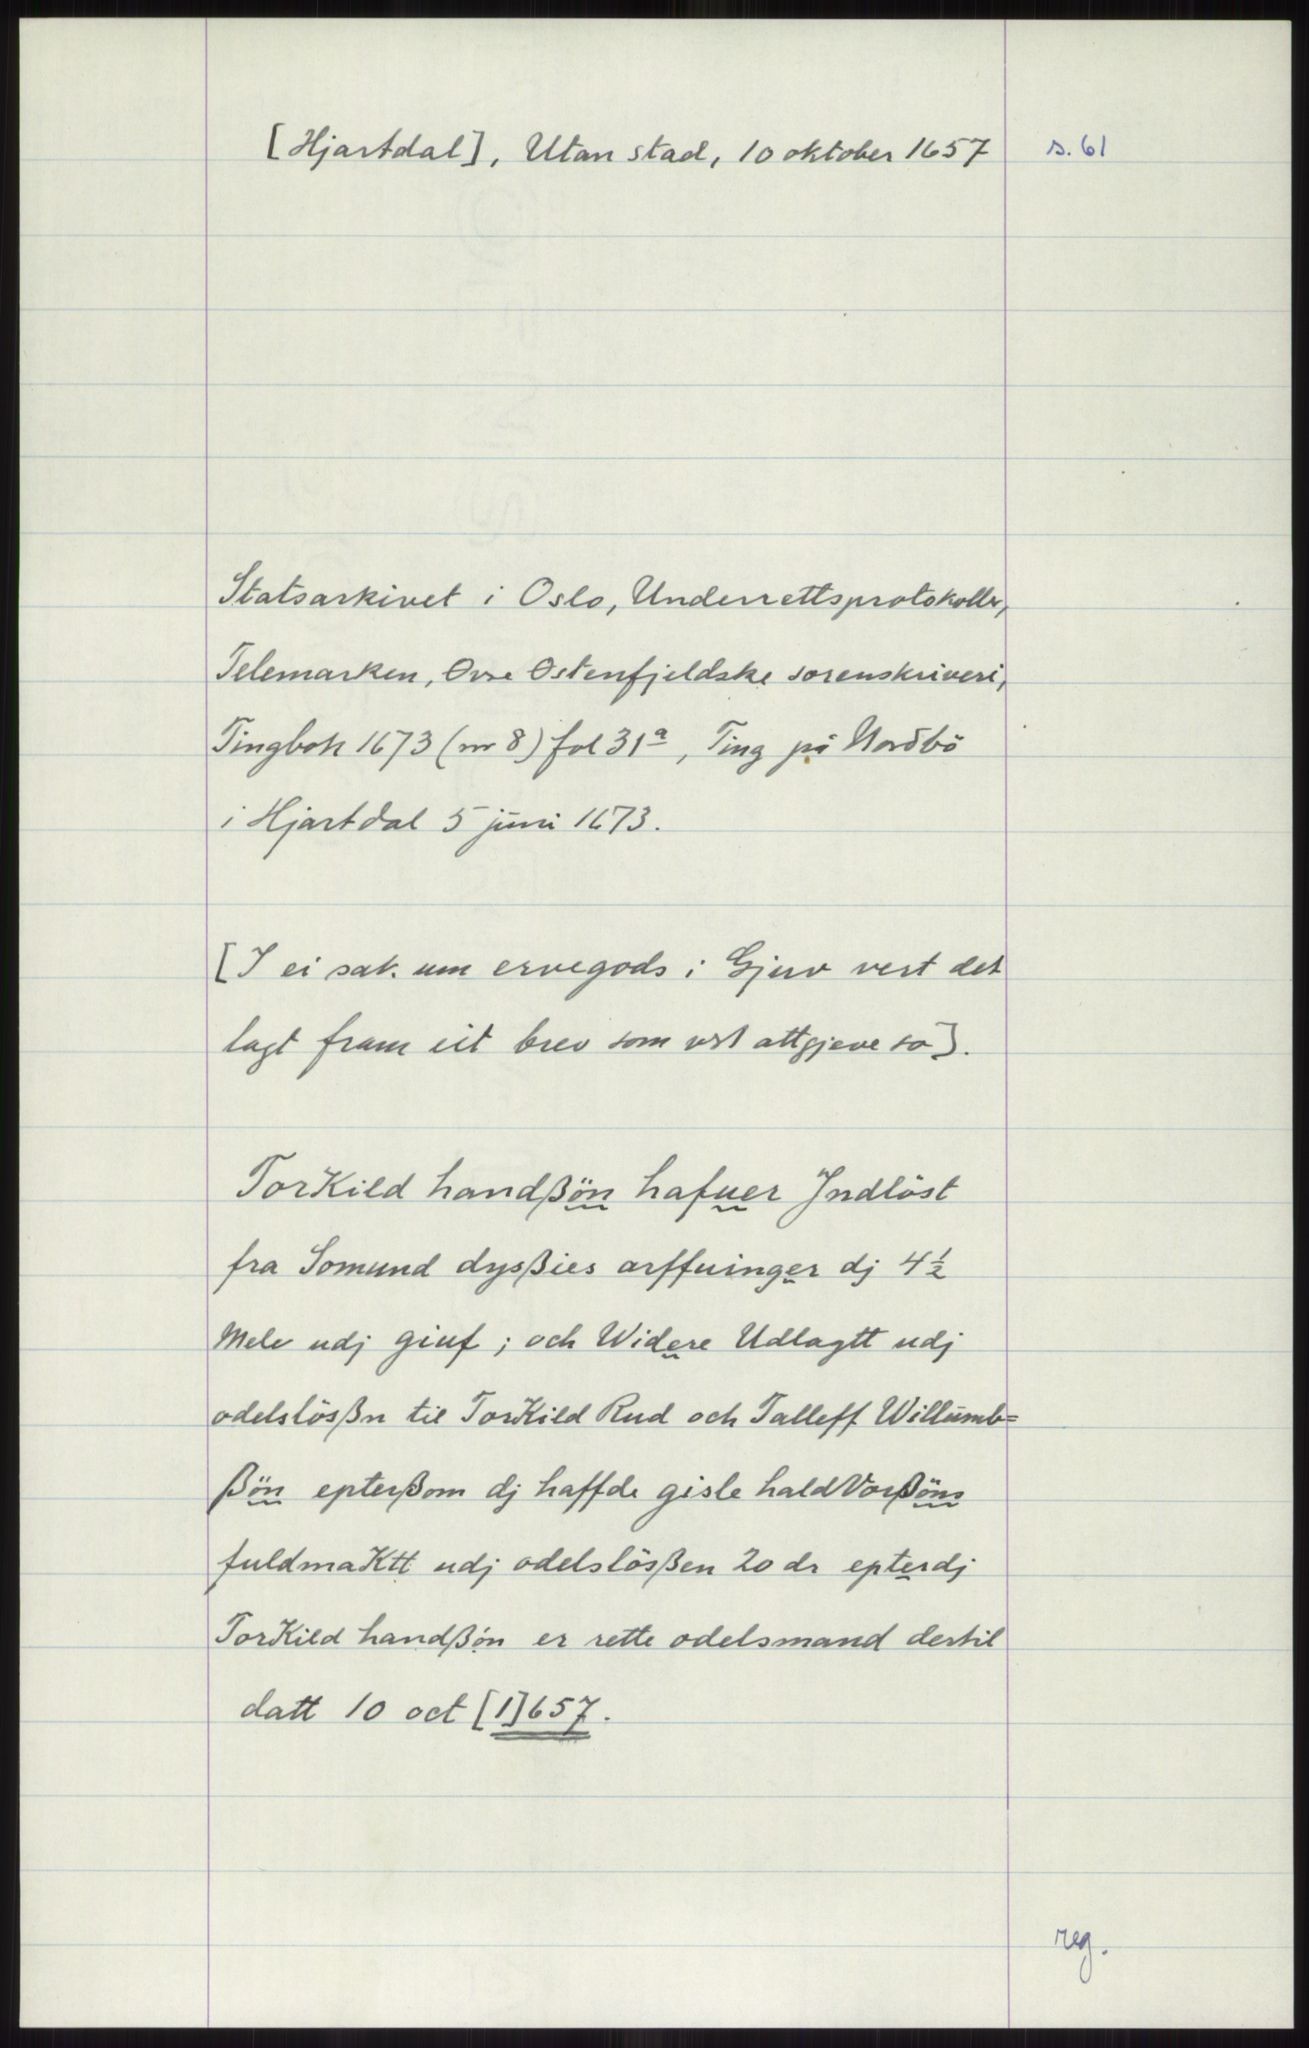 [Hjartdal], Utan stad, 10 oktober 1657 s. 61
Statsarkivet i Oslo, Underrettsprotokoller,
Telemarken, Øvre Østenfjeldske sorenskriveri,
Tingbok 1673 (nr 8) fol 31ª, Ting på Nordbö
i Hjartdal 5 juni 1673.
[I ei sak um ervegods i Gjuv vert det
lagt fram eit brev som vert attgjeve so].
TorKild handßön hafuer Jndlöst
fra Somund dysßies arffuinger dj 4½
Mele udj giuf ; och Widere Udlagtt udj
odelslösßn til TorKild Rud och Talleff Willumb=
ßön epterßom dj haffde gisle haldVorßöns
fuldmaKtt udj odelslösßen 20 dr epterdj
TorKild handßön er rette odelsmand dertil
datt 10 oct [1]657.
reg.